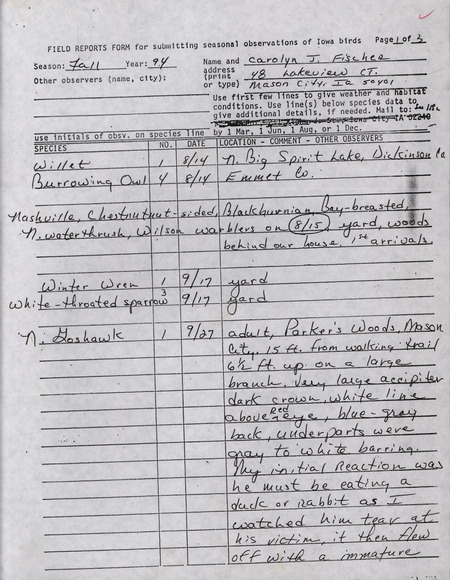 FIELD REPORTS FORM for submitting seasonal observations of Iowa birds Page 1 of 3
Season: Fall Year: 94 Name and Carolyn J. Fischer
address
Other observers (name, city): (print 48 Lakeview CT.
or type) Mason City, Ia 50401
Use first few lines to give weather and habitat
conditions. Use line(s) below species data to
give additional details, if needed. Mail to:
IA 52240
use initials of obsv. on species line by 1 Mar, 1 Jun, 1 Aug, or 1 Dec.
SPECIES NO. DATE LOCATION - COMMENT - OTHER OBSERVERS
Willet 1 8/14 N. Big Spirit Lake, Dickinson Co
Burrowing Owl 4 8/14 Emmet Co.
Nashville, Chestnutnut-sided, Blackburnian, Bay-breasted,
N. waterthrush, Wilson warblers on 8/15, yard, woods
behind our house, 1st arrivals
Winter Wren 1 9/17 yard
White-throated sparrow 3 9/17 yard
N. Goshawk 1 9/27 adult, Parker's Woods, Mason
City, 15 ft. from walking trail
6½ ft. up on a large
branch. Very large accipiter
dark crown, white line
above Red eye, blue-gray
back, underparts were
gray to white barring.
My initial Reaction was
he must be eating a
duck or rabbit as I
watched him tear at
his victim, it then flew
off with a immature